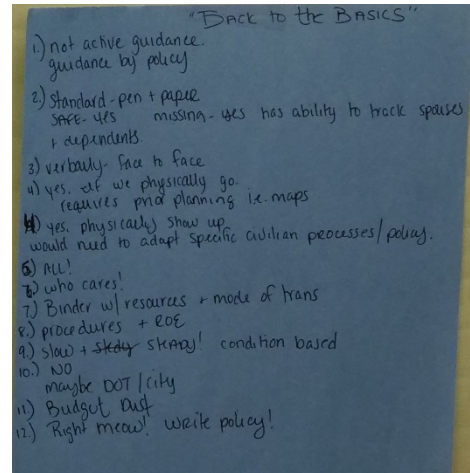 "BACK to the BASICS"
1.) not active guidance.
guidance by policy
2.) Standard - pen + paper
SAFE - yes missing - yes has ability to track spouses
+ dependents.
3) verbally - face to face
4) yes, if we physically go.
requires prior planning i.e. maps
4) yes, physically show up
would need to adapt specific civilian processes/policy.
5) ALL!
6) who cares!
7.) Binder w/ resources + mode of trans
8.) procedures + ROE
9.) slow + stedy STEADY! condition based
10.) NO
maybe DOT/city
11.) Budget Dust
12.) Right meow! write policy!